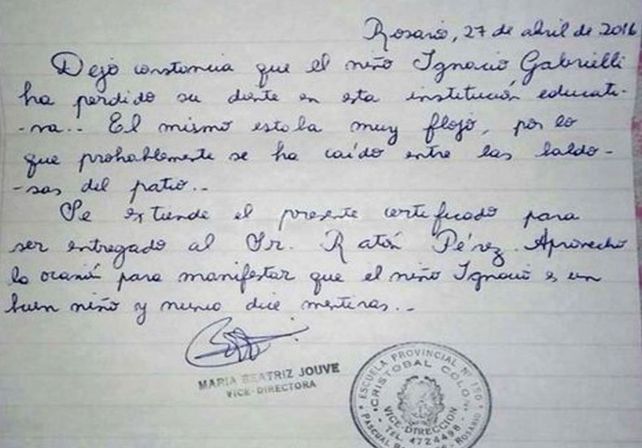 Rosario, 27 de abril de 2016
Dejo constancia que el niño Ignacio Gabrielli
ha perdido su diente en esta institución educati-
-va.. El mismo estaba muy flojo, por lo
que probablemente se ha caído entre las baldo-
-sas del patio..
Se extiende el presente certificado para
ser entregado al Sr. Ratón Pérez. Aprovecho
la ocasión para manifestar que el niño Ignacio es un
buen niño y nunca dice mentiras..
MARIA BEATRIZ JOUVE
VICE-DIRECTORA
ESCUELA PROVINCIAL Nº
"CRISTOBAL COLON"
VICE-DIRECCION
TEL. 4724498
PASCUAL ROSARIO